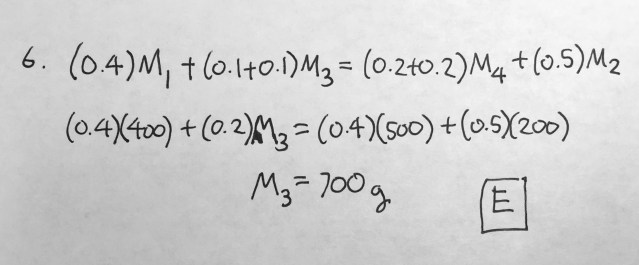 6. (0.4)M₁ + (0.1+0.1)M₃ = (0.2+0.2)M₄ + (0.5)M₂
(0.4)(400) + (0.2)M₃ = (0.4)(500) + (0.5)(200)
M₃ = 700 g E